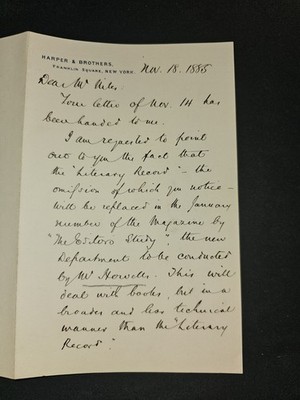 HARPER & BROTHERS.
FRANKLIN SQUARE, NEW YORK.
Nov. 18. 1885
Dear Mr Niles.
Your letter of Nov. 14 has
been handed to me.
I am requested to point
out to you the fact that
the "Literary Record" – the
omission of which you notice –
will be replaced in the January
number of the Magazine by
"The Editor's Study", the new
Department to be conducted
by Mr Howells. This will
deal with books, but in a
broader and less technical
manner than the "Literary
Record".